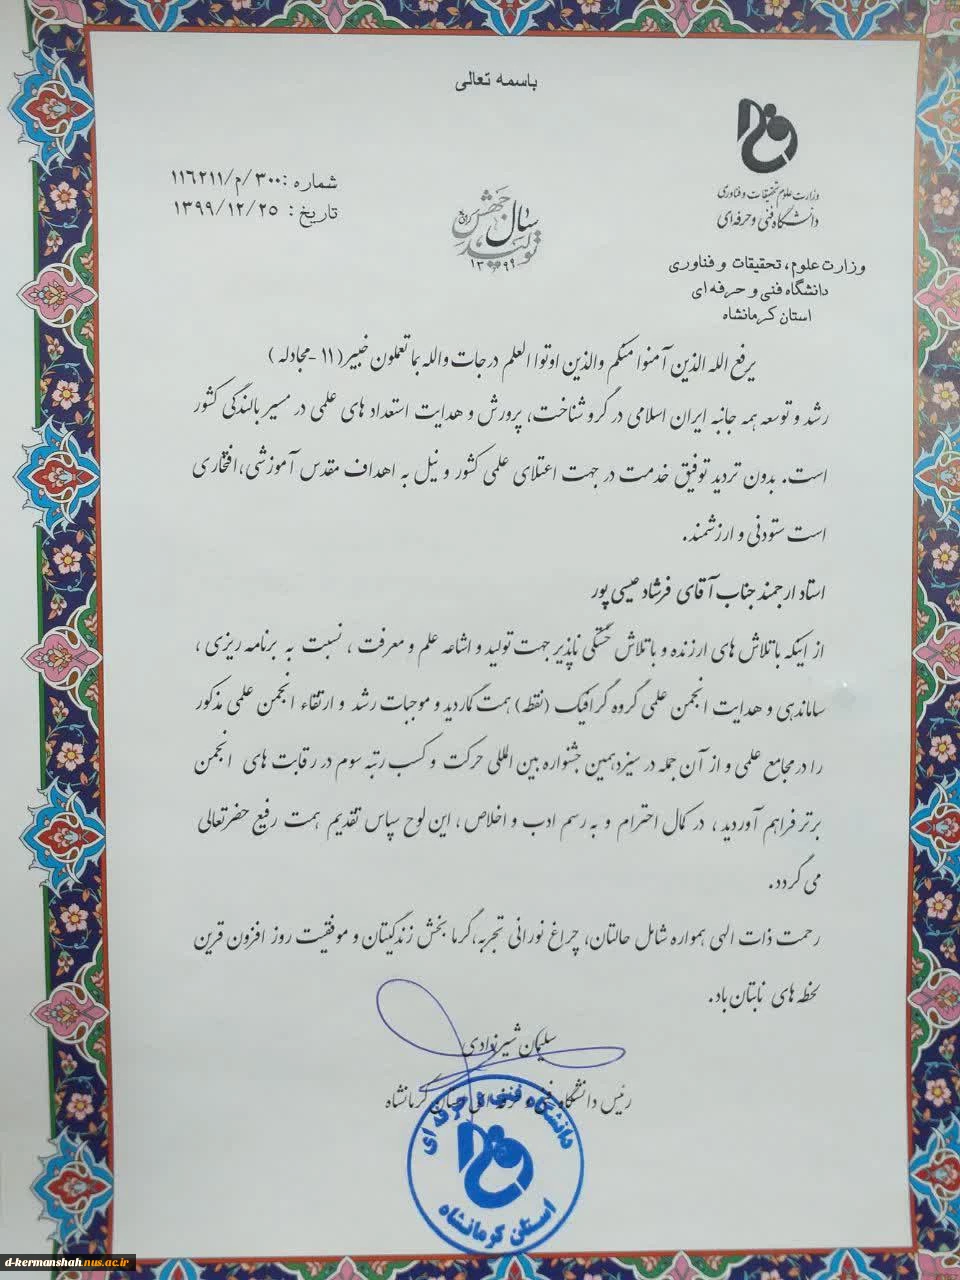 باسمه تعالی
وزارت علوم تحقیقات و فناوری
دانشگاه فنی و حرفه‌ای
شماره :۳۰۰/م/۱۱۶۲۱۱
تاریخ : ۱۳۹۹/۱۲/۲۵
سال جهش تولید
۱۳۹۹
وزارت علوم، تحقیقات و فناوری
دانشگاه فنی و حرفه ای
استان کرمانشاه
یرفع الله الذین آمنوا منکم والذین اوتوا العلم درجات والله بما تعملون خبیر( ۱۱ -مجادله )
رشد و توسعه همه جانبه ایران اسلامی در گرو شناخت، پرورش و هدایت استعداد های علمی در مسیر بالندگی کشور
است. بدون تردید توفیق خدمت در جهت اعتلای علمی کشور و نیل به اهداف مقدس آموزشی،افتخاری
است ستودنی و ارزشمند.
استاد ارجمند جناب آقای فرشاد عیسی پور
از اینکه با تلاش های ارزنده و با تلاش خستگی ناپذیر جهت تولید و اشاعه علم و معرفت ، نسبت به برنامه ریزی ،
ساماندهی و هدایت انجمن علمی گروه گرافیک (نقطه) همت گماردید و موجبات رشد و ارتقاء انجمن علمی مذکور
را در مجامع علمی و از آن جمله در سیزدهمین جشنواره بین المللی حرکت و کسب رتبه سوم در رقابت های انجمن
برتر فراهم آوردید ، در کمال احترام و به رسم ادب و اخلاص ، این لوح سپاس تقدیم همت رفیع حضرتعالی
می گردد.
رحمت ذات الهی همواره شامل حالتان، چراغ نورانی تجربه،گرما بخش زندگیتان و موفقیت روز افزون قرین
لحظه های نابتان باد.
سلیمان شیرزادی
رئیس دانشگاه فنی و حرفه ای استان کرمانشاه
دانشگاه فنی و حرفه ای
استان کرمانشاه
d-kermanshah.nus.ac.ir